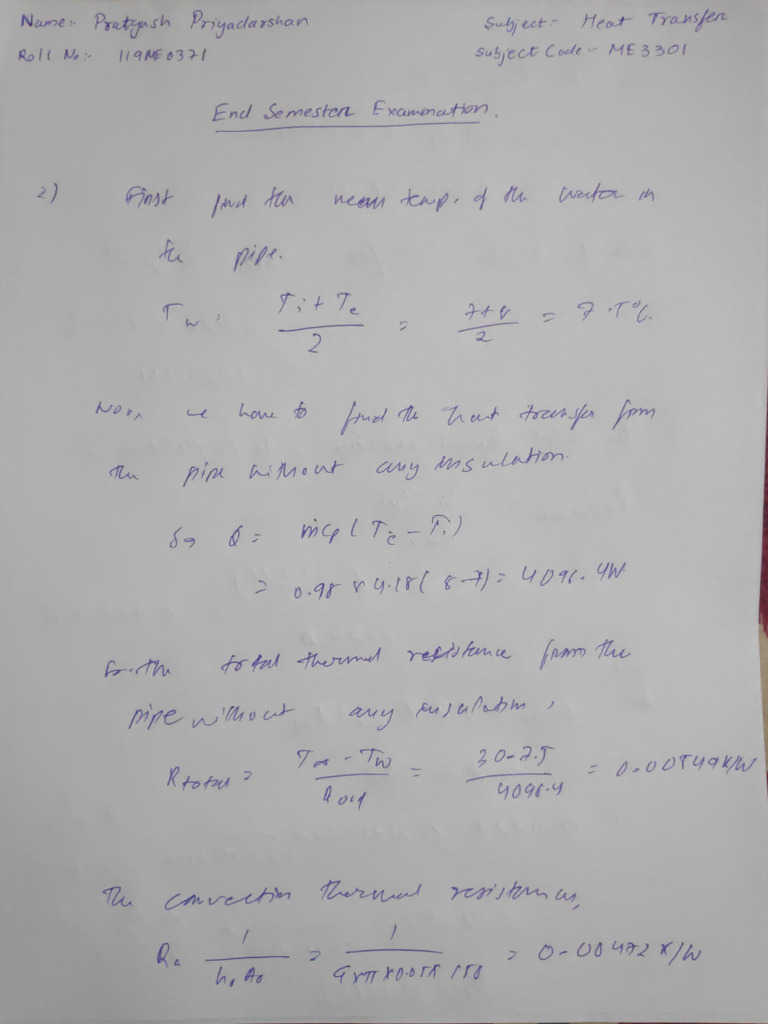 Name:- Pratyash Priyadarshan
Subject:- Heat Transfer
Roll No:- 119ME0371
Subject Code:- ME3301
End Semester Examination.
2) First find the mean temp. of the water in
the pipe.
Tw = (Ti + Te)/2 = (7+8)/2 = 7.5°C.
Now, we have to find the heat transfer from
the pipe without any insulation.
So Q = ṁcp (Te - Ti)
= 0.98 x 4.18 (8-7) = 4096.4W
So the total thermal resistance from the
pipe without any insulation,
Rtotal = (T∞ - Tw)/Qold = (30-7.5)/4096.4 = 0.00549 K/W
The convection thermal resistances,
Ro 1/(ho Ao) = 1/(9xπx0.05x150) = 0.00472 K/W